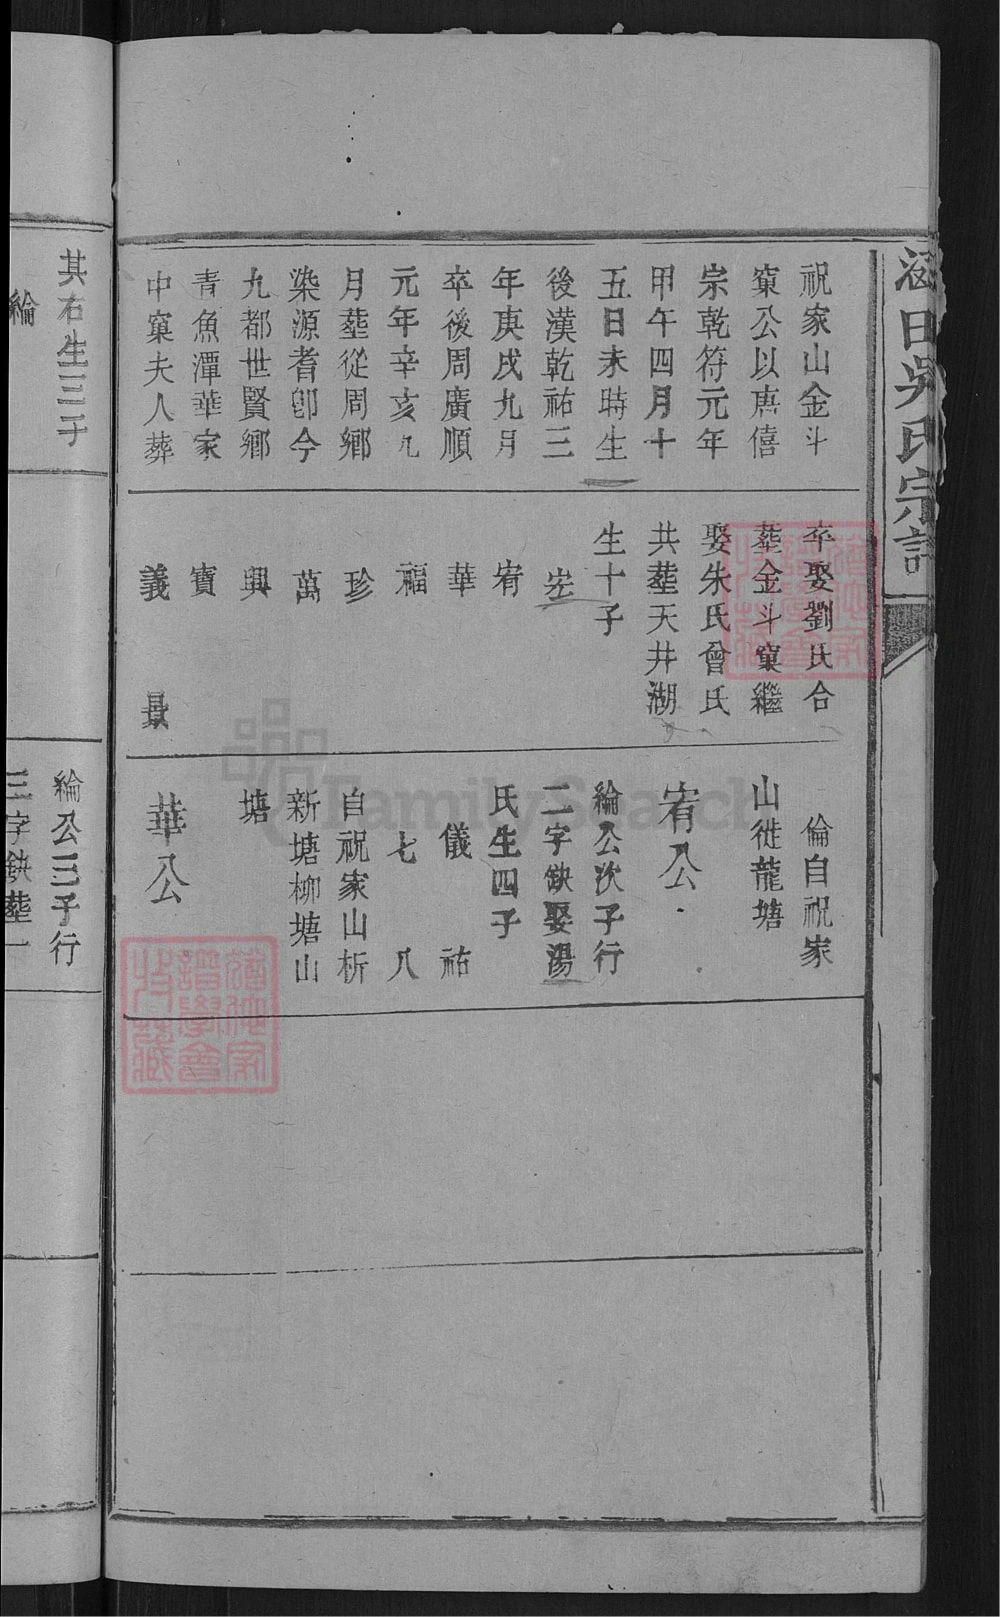 田吳氏宗譜
祝家山金斗
窠公以唐僖
宗乾符元年
甲午四月十
五日未時生
後漢乾祐三
年庚戌九月
卒後周廣順
元年辛亥九
月塟從周鄉
染源耆卽今
九都世賢鄉
青魚潭華家
中窠夫人葬
卒娶劉氏合
塟金斗窠繼
娶朱氏曾氏
共塟天井湖
生十子
宏
宥
華
福
珍
萬
興
寶
義 最
倫自祝家
山徙龍塘
宥公
綸公次子行
二字缺娶湯
氏生四子
儀 祐
七 八
自祝家山析
新塘柳塘山
塘
華公
其右生三子
綸
綸公三子行
三字缺塟一
FamilySearch